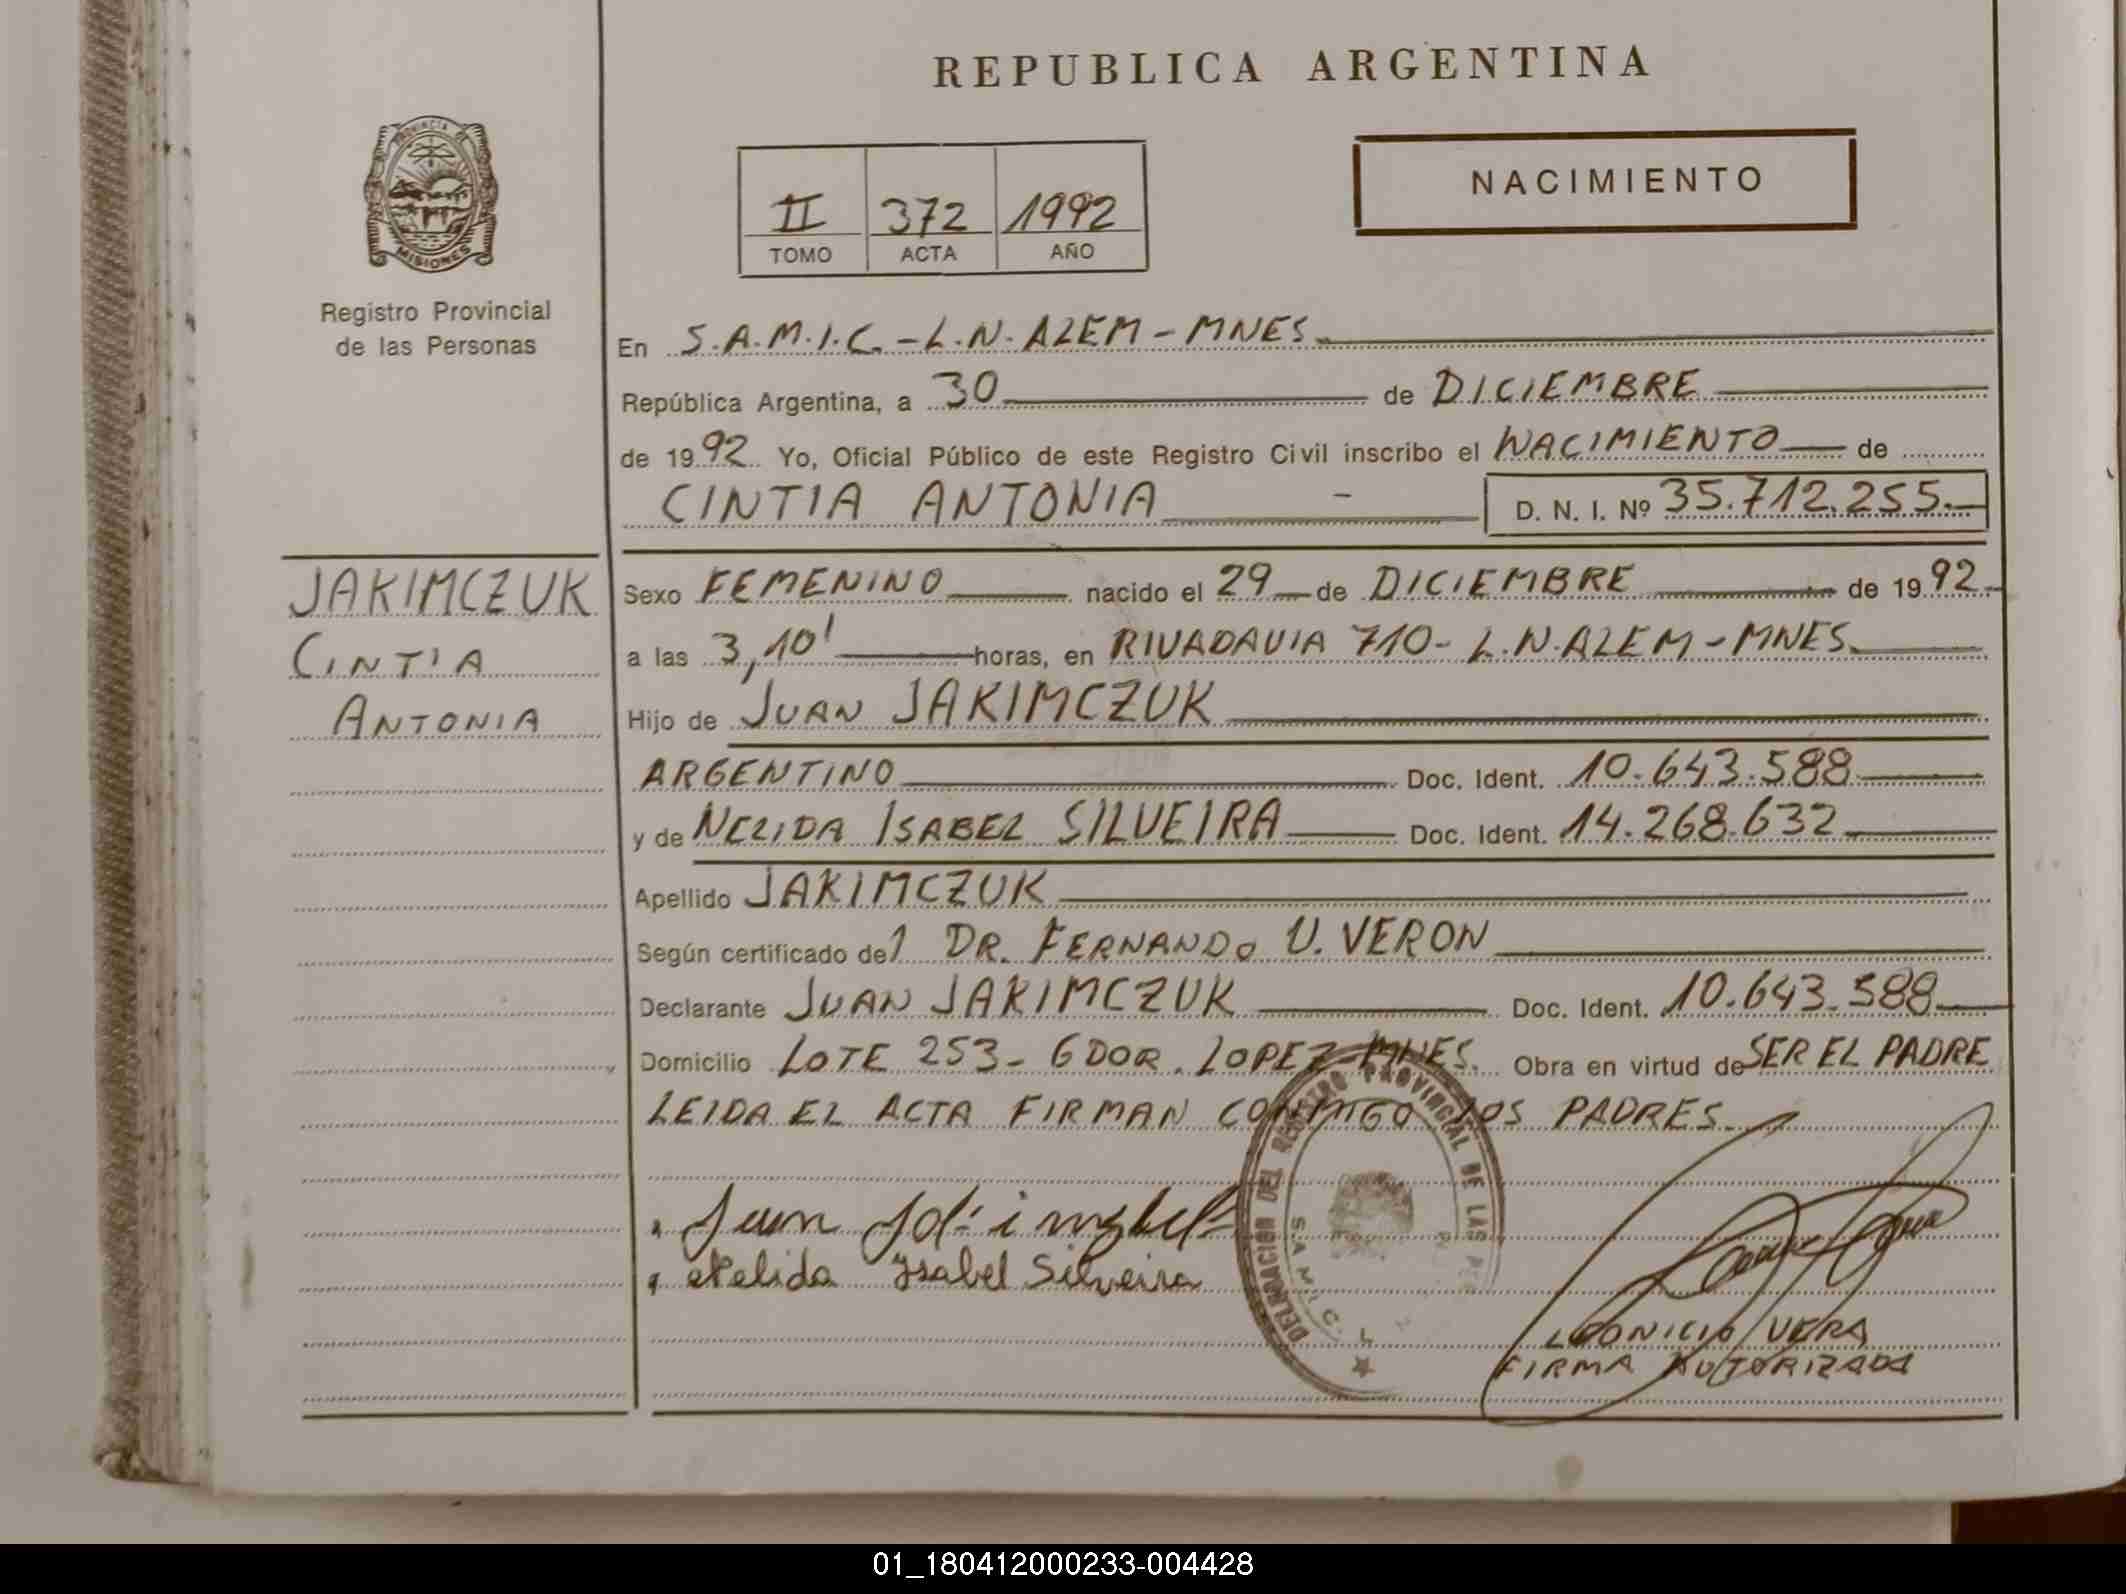 REPUBLICA ARGENTINA
PROVINCIA DE
MISIONES
Registro Provincial
de las Personas
II 372 1992
TOMO ACTA AÑO
NACIMIENTO
En S.A.M.I.C. - L.N. ALEM - MNES.
República Argentina, a 30 de DICIEMBRE
de 1992 Yo, Oficial Público de este Registro Civil inscribo el NACIMIENTO de
CINTIA ANTONIA - D. N. I. Nº 35.712.255.-
JAKIMCZUK
CINTIA
ANTONIA
Sexo FEMENINO nacido el 29 de DICIEMBRE de 1992.-
a las 3,10' horas, en RIVADAVIA 710 - L.N. ALEM - MNES.
Hijo de JUAN JAKIMCZUK
ARGENTINO Doc. Ident. 10.643.588
y de NELIDA ISABEL SILVEIRA Doc. Ident. 14.268.632
Apellido JAKIMCZUK
Según certificado del DR. FERNANDO U. VERON
Declarante JUAN JAKIMCZUK Doc. Ident. 10.643.588
Domicilio LOTE 253 - GDOR. LOPEZ - MNES. Obra en virtud de SER EL PADRE
LEIDA EL ACTA FIRMAN CONMIGO LOS PADRES.
Juan
Nelida Ysabel Silveira
DELEGACION DEL REGISTRO PROVINCIAL DE LAS
S.A.M.I.C. L.
LEONICIO VERA
FIRMA AUTORIZADA
01_180412000233-004428